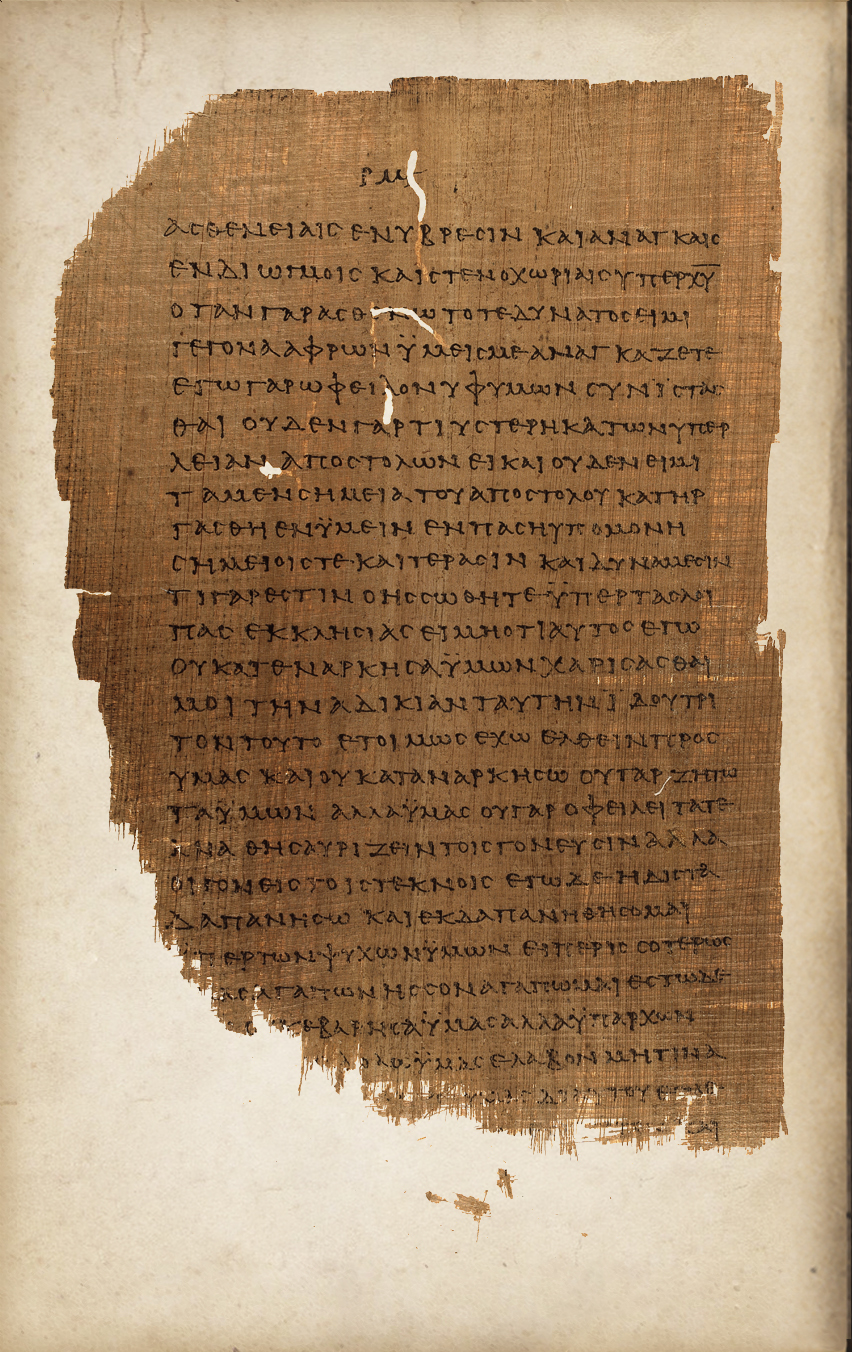 ΡΜ
ΑϹΘΕΝΕΙΑΙϹ ΕΝΥΒΡΕϹΙΝ ΚΑΙΑΝΑΓΚΑΙϹ
ΕΝΔΙΩΓΜΟΙϹ ΚΑΙϹΤΕΝΟΧΩΡΙΑΙϹΥΠΕΡΧ̅Υ̅
ΟΤΑΝΓΑΡΑϹΘΕΝΩΤΟΤΕΔΥΝΑΤΟϹΕΙΜΙ
ΓΕΓΟΝΑΑΦΡΩΝΫΜΕΙϹΜΕΑΝΑΓΚΑΖΕΤΕ
ΕΓΩΓΑΡΩΦΕΙΛΟΝΥΦΥΜΩΝ ϹΥΝΪϹΤΑϹ
ΘΑΙ ΟΥΔΕΝΓΑΡΤΙΥϹΤΕΡΗΚΑΤΩΝΥΠΕΡ
ΛΕΙΑΝ ΑΠΟϹΤΟΛΩΝ ΕΙΚΑΙΟΥΔΕΝΕΙΜΙ
ΤΑΜΕΝϹΗΜΕΙΑΤΟΥΑΠΟϹΤΟΛΟΥ ΚΑΤΗΡ
ΓΑϹΘΗΕΝΫΜΕΙΝ ΕΝΠΑϹΗΥΠΟΜΟΝΗ
ϹΗΜΕΙΟΙϹΤΕΚΑΙΤΕΡΑϹΙΝ ΚΑΙΔΥΝΑΜΕϹΙΝ
ΤΙΓΑΡΕϹΤΙΝ ΟΗϹϹΩΘΗΤΕΫΠΕΡΤΑϹΛΟΙ
ΠΑϹ ΕΚΚΛΗϹΙΑϹ ΕΙΜΗΟΤΙΑΥΤΟϹΕΓΩ
ΟΥΚΑΤΕΝΑΡΚΗϹΑΫΜΩΝΧΑΡΙϹΑϹΘΑΙ
ΜΟΙΤΗΝΑΔΙΚΙΑΝΤΑΥΤΗΝΪΔΟΥΤΡΙ
ΤΟΝΤΟΥΤΟ ΕΤΟΙΜΩϹΕΧΩ ΕΛΘΕΙΝΠΡΟϹ
ΥΜΑϹ ΚΑΙΟΥΚΑΤΑΝΑΡΚΗϹΩ ΟΥΓΑΡΖΗΤΩ
ΤΑΫΜΩΝ ΑΛΛΑΫΜΑϹ ΟΥΓΑΡΟΦΕΙΛΕΙΤΑΤΕ
ΚΝΑ ΘΗϹΑΥΡΙΖΕΙΝΤΟΙϹΓΟΝΕΥϹΙΝΑΛΛΑ
ΟΙΓΟΝΕΙϹΤΟΙϹΤΕΚΝΟΙϹ ΕΓΩΔΕΗΔΙϹΤΑ
ΔΑΠΑΝΗϹΩ ΚΑΙΕΚΔΑΠΑΝΗΘΗϹΟΜΑΙ
ΫΠΕΡΤΩΝΨΥΧΩΝΫΜΩΝ ΕΙΠΕΡΙϹϹΟΤΕΡΩϹ
ΑϹΑΓΑΠΩΝΗϹϹΟΝΑΓΑΠΩΜΑΙΕϹΤΩΔΕ
ΕΒΑΡΗϹΑΫΜΑϹΑΛΛΑΫΠΑΡΧΩΝ
ΔΟΛΩΫΜΑϹΕΛΑΒΟΝ ΜΗΤΙΝΑ
ΥΜΑϹ